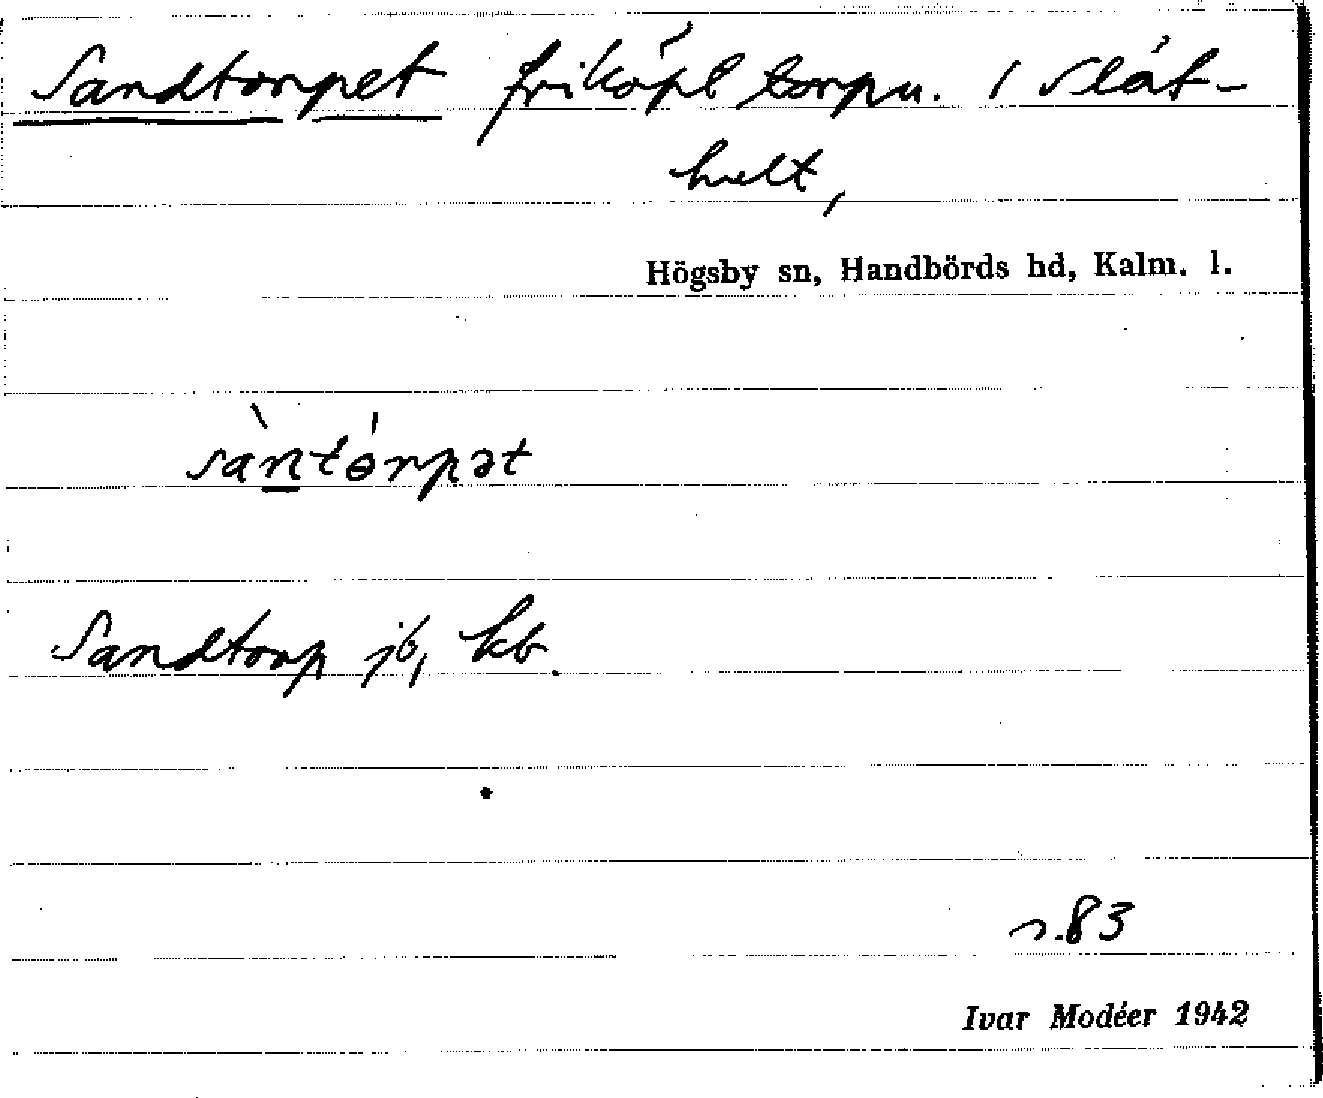 Sandtorpet friköpt torpn. i Slät-
hult,
Högsby sn, Handbörds hd, Kalm. l.
sàntɵ́rpət
Sandtorp jb, kb.
s.83
Ivar Modéer 1942